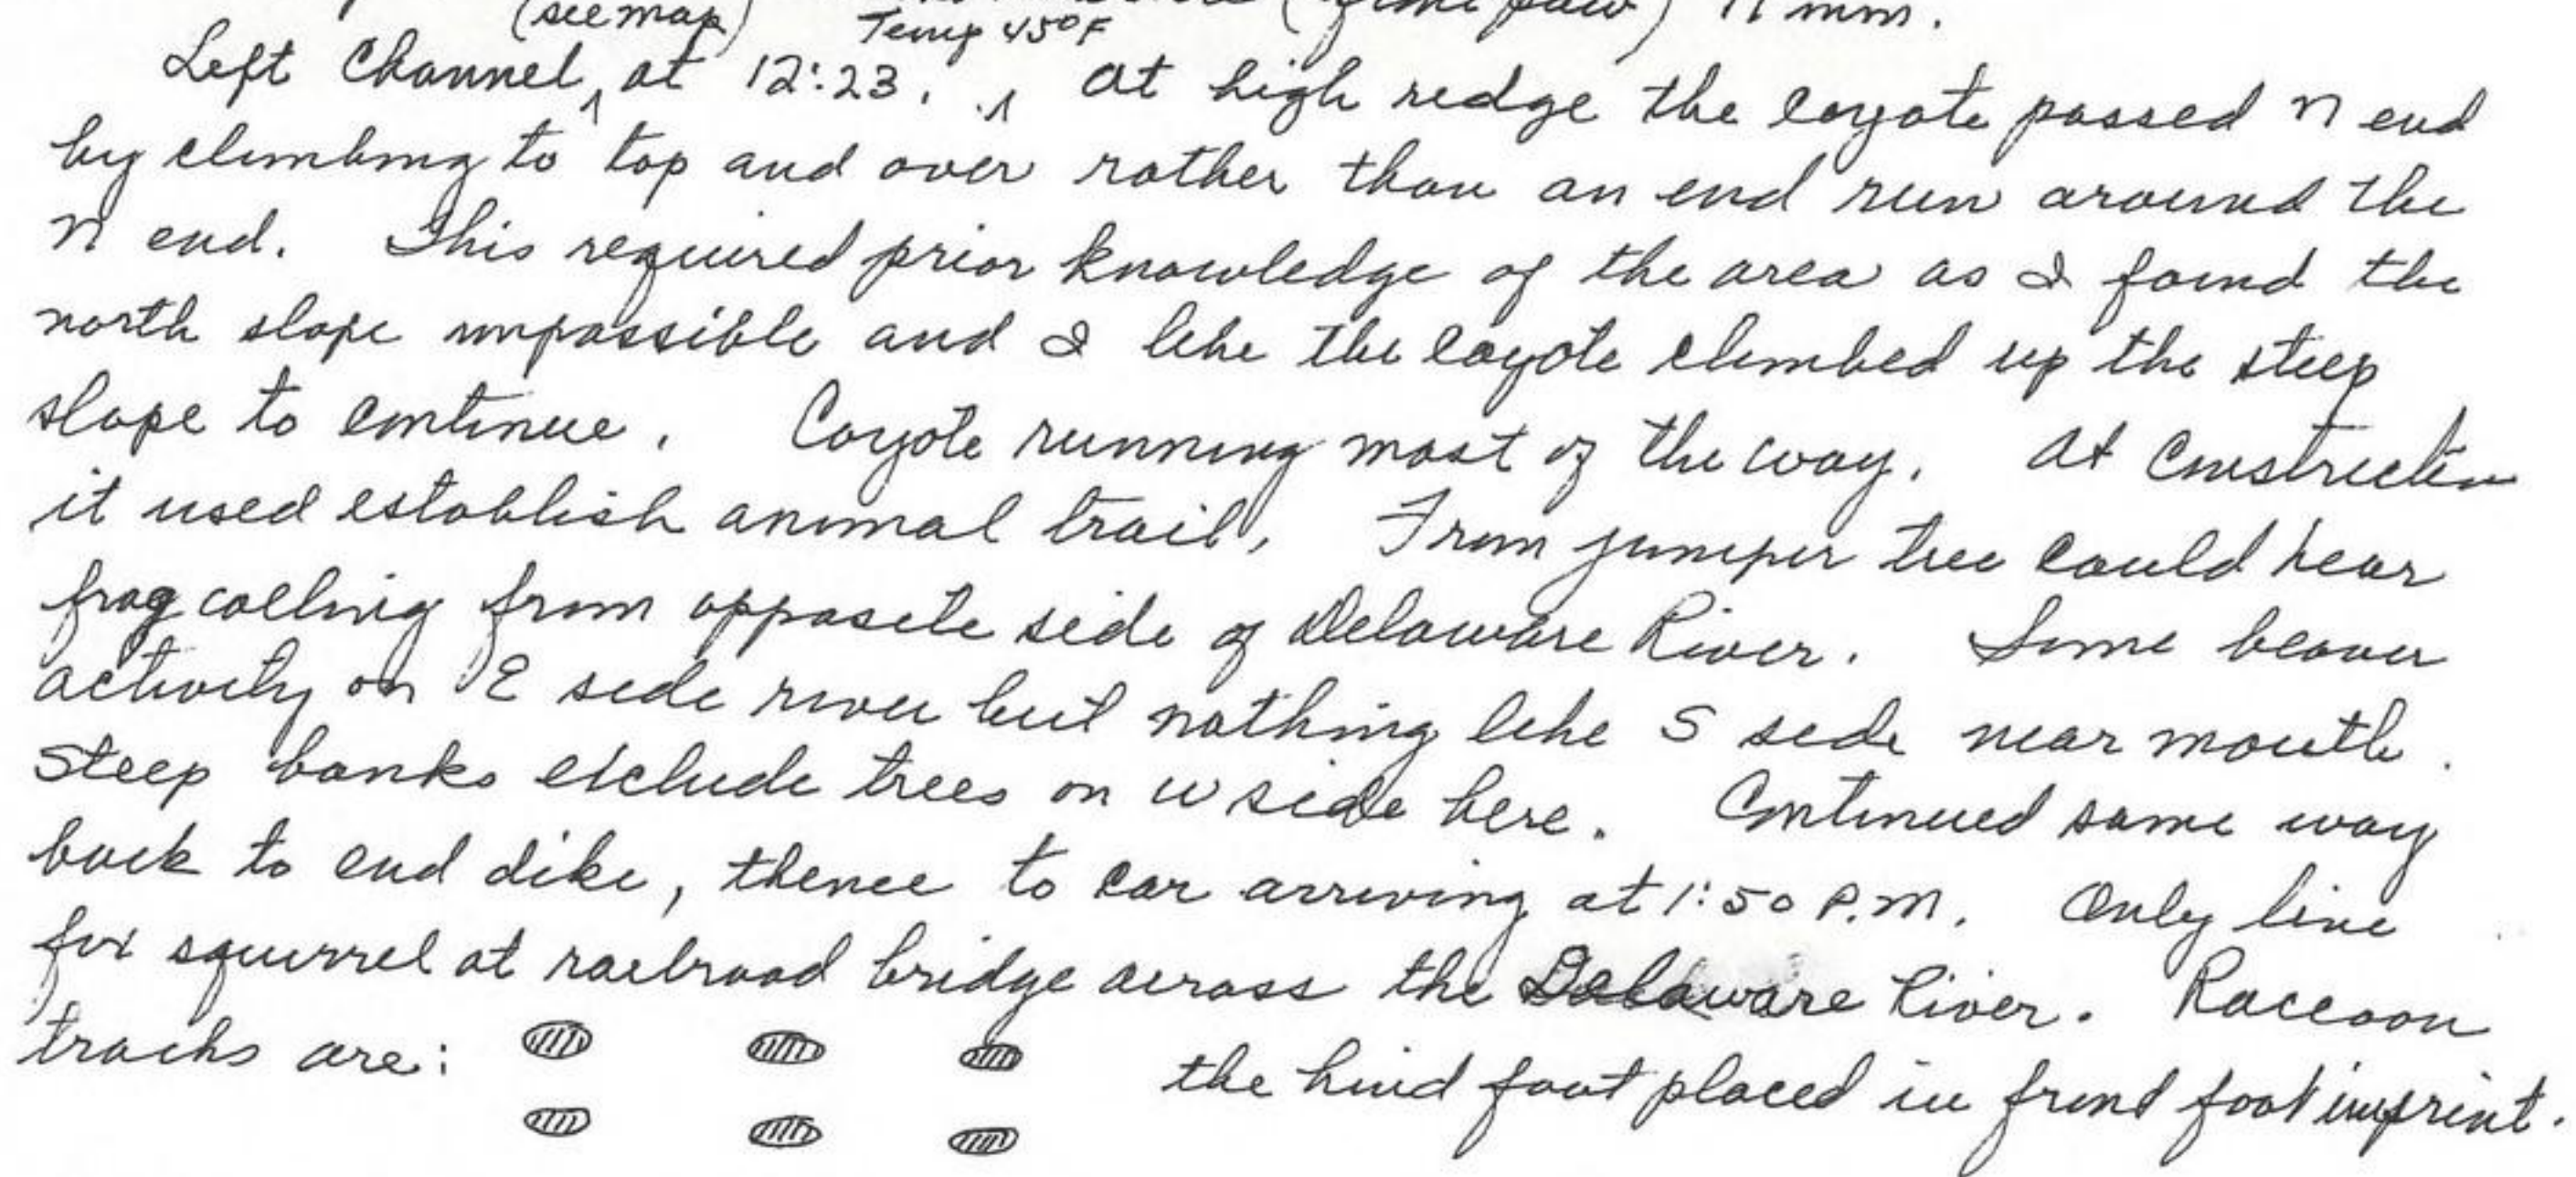 (see map) Temp 45°F (front paw) 11 mm.
Left Channel ^ at 12:23. ^ At high redge the coyote passed N end
by climbing to top and over rather than an end run around the
N end. This required prior knowledge of the area as I found the
north slope impassible and I like the coyote climbed up the steep
slope to continue. Coyote running most of the way. At Construction
it used establish animal trail, From juniper tree could hear
frog calling from opposite side of Delaware River. Some beaver
activity on E side river but nothing like S side near mouth.
Steep banks exclude trees on W side here. Continued same way
back to end dike, thence to car arriving at 1:50 P.M. Only live
fox squirrel at railroad bridge across the Delaware River. Raccoon
tracks are: the hind foot placed in frond foot imprint.